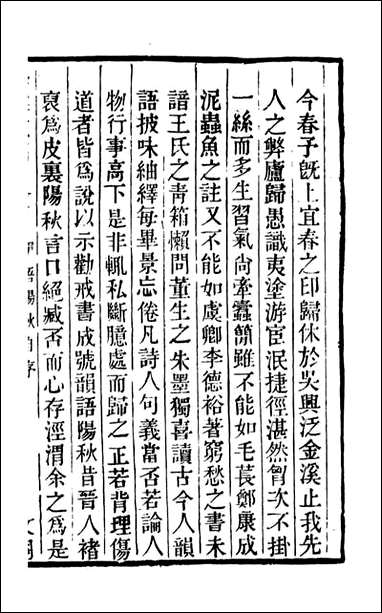 今春予旣上宜春之印歸休於吳興泛金溪止我先
人之弊廬歸愚識夷塗游宦泯捷徑湛然胷次不掛
一絲而多生習氣尙牽蠹簡雖不能如毛萇鄭康成
泥蟲魚之註又不能如虞卿李德裕著窮愁之書未
諳王氏之靑箱懶問董生之朱墨獨喜讀古今人韻
語披味紬繹每畢景忘倦凡詩人句義當否若論人
物行事高下是非輒私斷臆處而歸之正若背理傷
道者皆爲說以示勸戒書成號韻語陽秋昔晉人褚
裒爲皮裏陽秋言口絕臧否而心存涇渭余之爲是
語陽秋自序